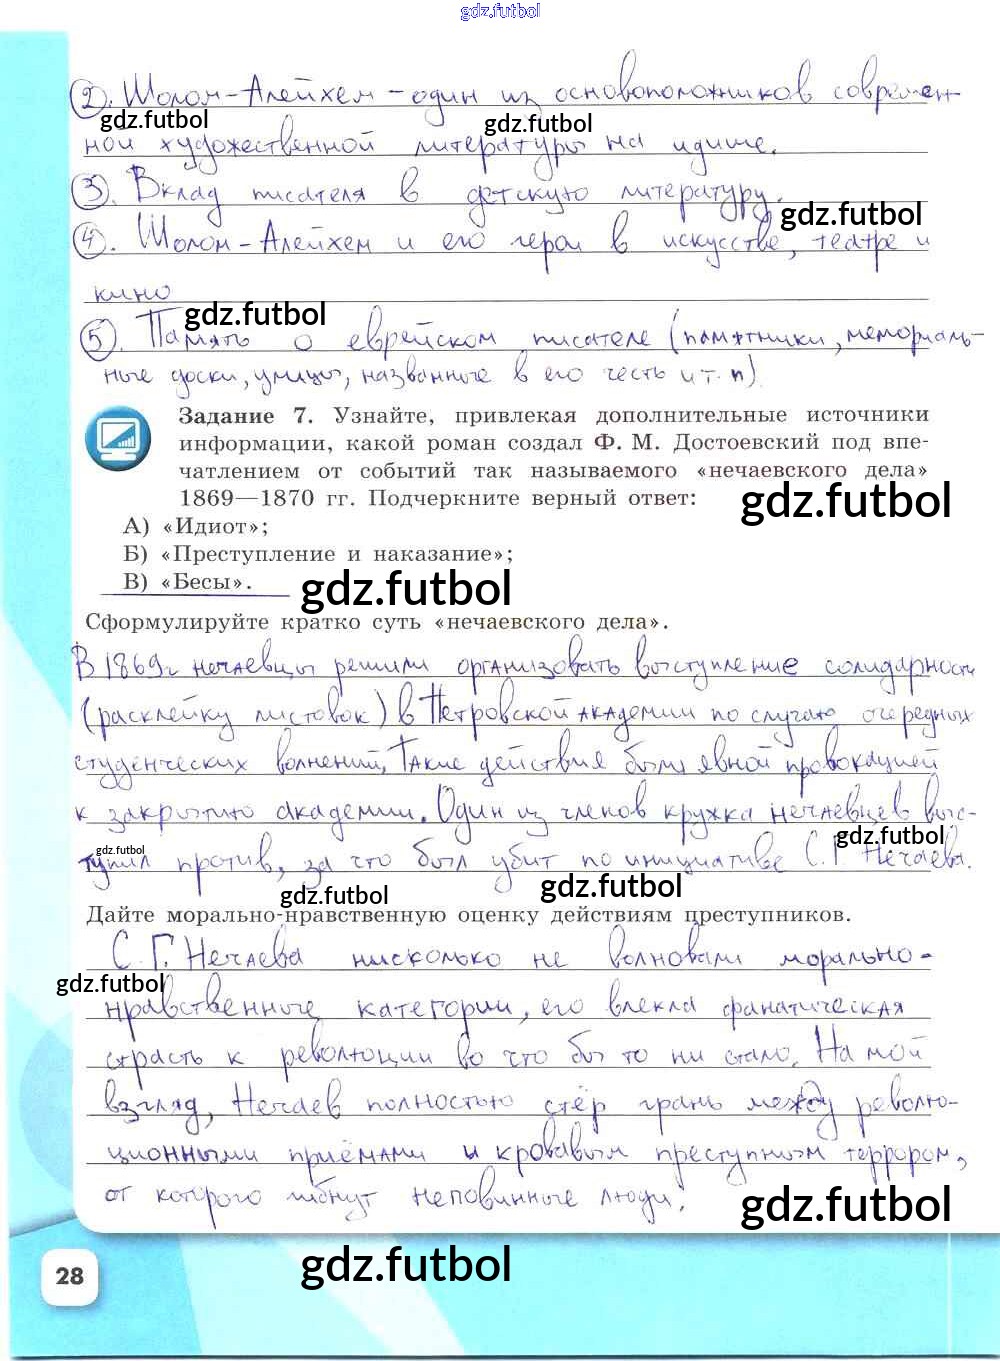 gdz.futbol
2). Шолом-Алейхем - один из основоположников современ-
gdz.futbol gdz.futbol
ной художественной литературы на идише.
3). Вклад писателя в детскую литературу.
gdz.futbol
4). Шолом-Алейхем и его герои в искусстве, театре и
кино
gdz.futbol
5). Память о еврейском писателе (памятники, мемориаль-
ные доски, улицы, названные в его честь и т. п).
Задание 7. Узнайте, привлекая дополнительные источники
информации, какой роман создал Ф. М. Достоевский под впе-
чатлением от событий так называемого «нечаевского дела»
1869—1870 гг. Подчеркните верный ответ:
gdz.futbol
А) «Идиот»;
Б) «Преступление и наказание»;
В) «Бесы».
gdz.futbol
Сформулируйте кратко суть «нечаевского дела».
В 1869г нечаевцы решили организовать выступление солидарности
(расклейку листовок) в Петровской академии по случаю очередных
студенческих волнений. Такие действия были явной провокацией
к закрытию академии. Один из членов кружка нечаевцев выс-
gdz.futbol
gdz.futbol
тупил против, за что был убит по инициативе С.Г. Нечаева.
gdz.futbol gdz.futbol
Дайте морально-нравственную оценку действиям преступников.
С.Г. Нечаева нисколько не волновали морально-
gdz.futbol
нравственные категории, его влекла фанатическая
страсть к революции во что бы то ни стало. На мой
взгляд, Нечаев полностью стёр грань между револю-
ционными приёмами и кровавым преступным террором,
от которого гибнут неповинные люди.
gdz.futbol
28
gdz.futbol